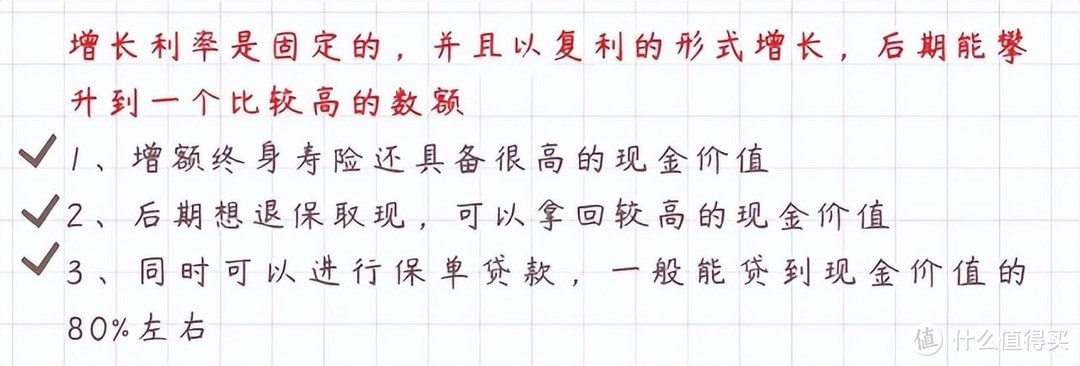 增长利率是固定的，并且以复利的形式增长，后期能攀
升到一个比较高的数额
1、增额终身寿险还具备很高的现金价值
2、后期想退保取现，可以拿回较高的现金价值
3、同时可以进行保单贷款，一般能贷到现金价值的
80%左右
值 什么值得买